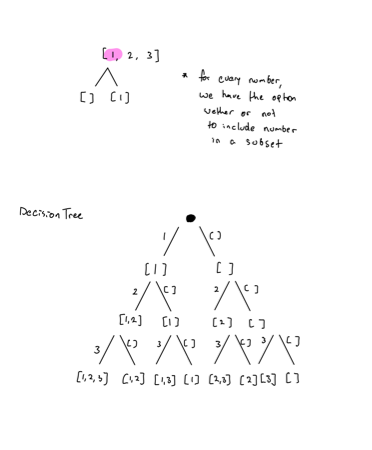 [1, 2, 3]
[ ] [1]
* for every number,
we have the option
wether or not
to include number
in a subset
Decision Tree
1 [ ]
[1] [ ]
2 [ ] 2 [ ]
[1,2] [1] [2] [ ]
3 [ ] 3 [ ] 3 [ ] 3 [ ]
[1,2,3] [1,2] [1,3] [1] [2,3] [2] [3] [ ]